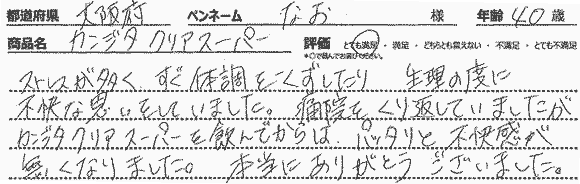 都道府県 大阪府 ペンネーム なお 様 年齢 40 歳
商品名 カンジダ クリアスーパー 評価 とても満足 ・ 満足 ・ どちらとも言えない ・ 不満足 ・ とても不満足
*○で囲んでお選びください。
ストレスが多く すぐ体調をくずしたり 生理の度に
不快な思いをしていました。 病院をくり返していましたが
カンジダクリアスーパーを飲んでからは、パッタリと 不快感が
無くなりました。 本当にありがとう ございました。